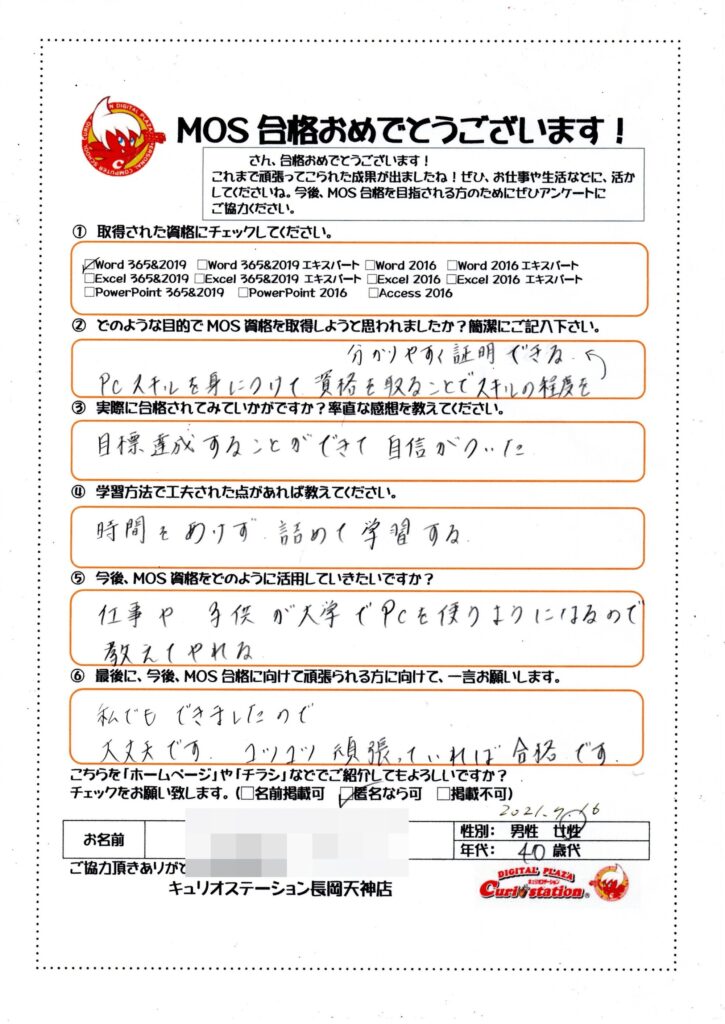 MOS 合格おめでとうございます！
さん、合格おめでとうございます！
これまで頑張ってこられた成果が出ましたね！ぜひ、お仕事や生活などに、活か
してくださいね。今後、MOS 合格を目指される方のためにぜひアンケートに
ご協力ください。
① 取得された資格にチェックしてください。
☑Word 365&2019 □Word 365&2019 エキスパート □Word 2016 □Word 2016 エキスパート
□Excel 365&2019 □Excel 365&2019 エキスパート □Excel 2016 □Excel 2016 エキスパート
□PowerPoint 365&2019 □PowerPoint 2016 □Access 2016
② どのような目的で MOS 資格を取得しようと思われましたか？簡潔にご記入下さい。
分かりやすく証明できる
PCスキルを身につけて 資格を取ることでスキルの程度を
③ 実際に合格されてみていかがですか？率直な感想を教えてください。
目標達成することができて 自信がついた
④ 学習方法で工夫された点があれば教えてください。
時間をあけず 詰めて学習する
⑤ 今後、MOS 資格をどのように活用していきたいですか？
仕事や 子供が大学でPCを使うようになるので
教えてやれる
⑥ 最後に、今後、MOS 合格に向けて頑張られる方に向けて、一言お願いします。
私でもできましたので
大丈夫です. コツコツ頑張っていれば合格です.
こちらを「ホームページ」や「チラシ」などでご紹介してもよろしいですか？
チェックをお願い致します。（□名前掲載可 ☑匿名なら可 □掲載不可）
2021.9.16
お名前
性別： 男性 女性
年代： 40 歳代
ご協力頂きありがと
キュリオステーション長岡天神店
DIGITAL PLAZA
キュリオステーション
Curio station